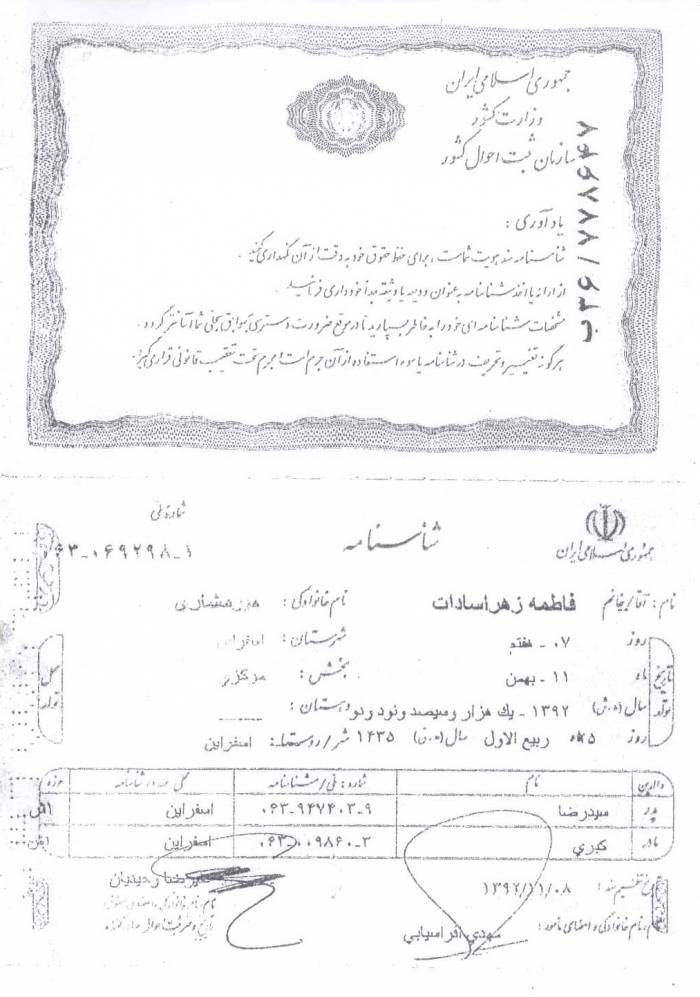 جمهوری اسلامی ایران
وزارت کشور
سازمان ثبت احوال کشور
ب۳۶/۷۷۸۶۴۷
یادآوری :
شناسنامه سند هویت شماست ، برای حفظ حقوق خود به دقت از آن نگهداری کنید .
از ارائه یا اخذ شناسنامه به عنوان ودیعه یا وثیقه جداً خودداری فرمائید .
مشخصات شناسنامه ای خود را به خاطر بسپارید تا در موقع ضرورت دسترسی به سوابق سجلی شما آسانتر گردد .
هرگونه تغییر و تحریف در شناسنامه یا سوء استفاده از آن جرم است و مجرم تحت تعقیب قانونی قرار می گیرد .
جمهوری اسلامی ایران
شناسنامه
شماره ملی
۰۶۳-۰۶۹۲۹۸-۱
نام : آقا/خانم فاطمه زهراسادات نام خانوادگی :
تاریخ تولد
روز ۰۷ - هفتم شهرستان : اسفراین
ماه ۱۱ - بهمن بخش : مرکزی
سال (ه.ش) ۱۳۹۲ - یك هزار وسیصد ونود ودو استان :
روز ۲۵ ماه ربیع الاول سال (ه.ق) ۱۴۳۵ شهر/روستا : اسفراین
محل تولد
والدین نام شماره : ملی/شناسنامه محل صدور شناسنامه حوزه
پدر سیدرضا ۰۶۳-۹۴۷۴۰۳-۹ اسفراین
مادر کبري ۰۶۳-۰۰۹۸۶۰-۳ اسفراین
تاریخ تنظیم سند : ۱۳۹۲/۱۱/۰۸
نام،نام خانوادگی و امضای مامور : مهدي افراسیابي